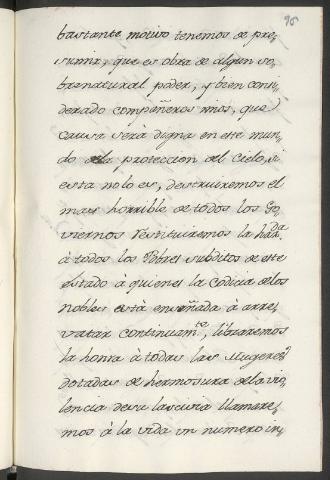 96
bastante motivo tenemos de pre-
sumir, que es obra de algun so-
brenatural poder, y bien consi-
derado compañeros mios, que
causa serà digna en este mun-
do de la proteccion del cielo, si
esta no lo es, destruiremos el
mas horrible de todos los Go-
viernos restituiremos la hazda.
à todos los Pobres subditos de este
estado à quienes la codicia de los
nobles està enseñada à arre-
vatar continuamte, libraremos
la honra à todas las Mugeres
dotadas de hermosura de la vio-
lencia de su lascivia llamare-
mos à la vida un numero in-